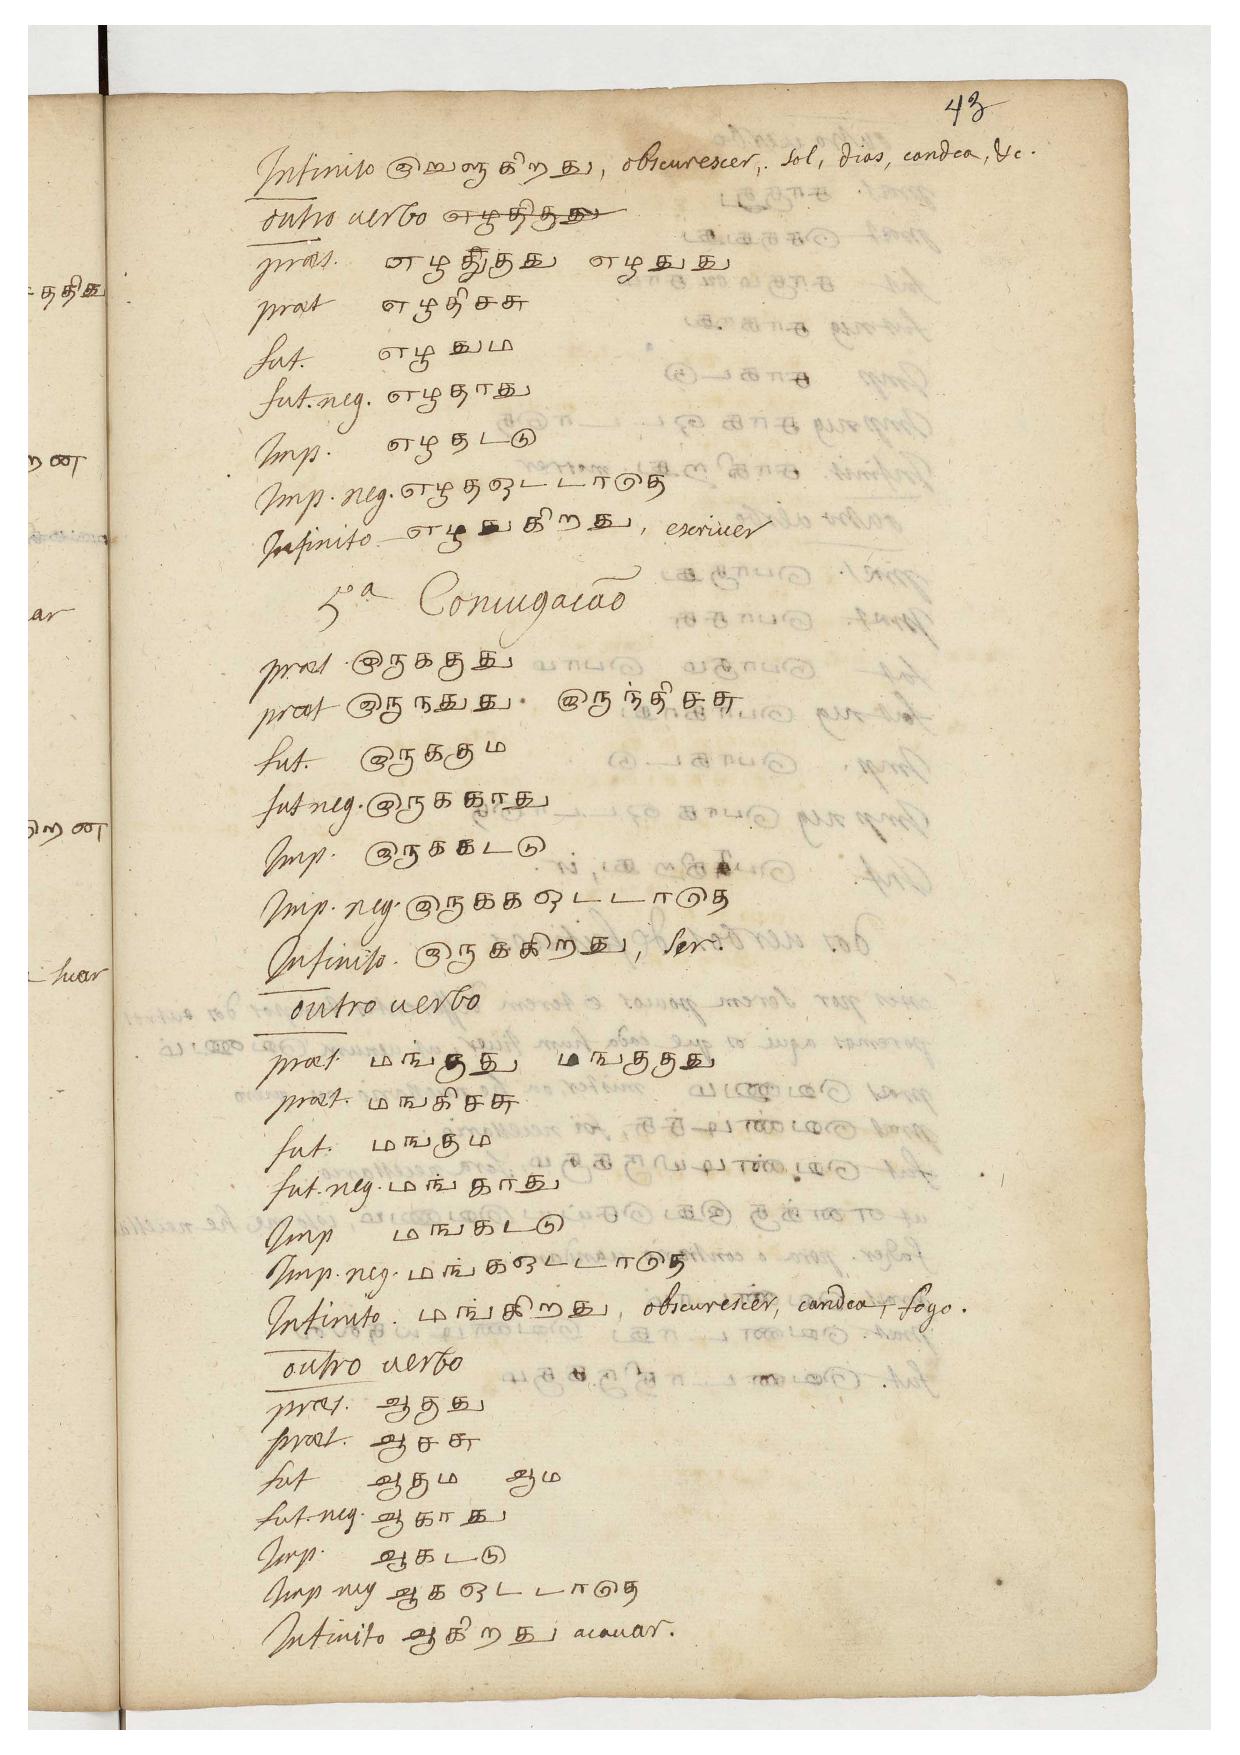 43
Infinito இறுளுகிறது, obscurescer, sol, dias, candea, &c.
outro uerbo எழுதிதது
præs. எழுதுது எழுதுது
præt எழுதிசசு
fut. எழுதும
fut. neg. எழுதாது
Imp. எழுதடடு
Imp. neg. எழுதஒடடாடுத
Infinito எழுதுகிறது, escriuer
5ª Coniugação
præs. இருகதது
præt இருநதுது. இருந்திசசு
fut. இருககும
fut neg. இருககாது
Imp. இருககடடு
Imp. neg. இருககஒடடாடுத
Infinito. இருககிறது, ser.
outro uerbo
præs. மஙகுது மஙகுதது
præt. மஙகிசசு
fut. மஙகும
fut. neg. மங்காது
Imp மஙகடடு
Imp. neg. மங்கஒடடாடுத
Infinito. மங்கிறது, obscurescer, candea, fogo.
outro uerbo
præs. ஆகுது
præt. ஆசசு
fut ஆகும ஆம
fut. neg. ஆகாது
Imp. ஆகடடு
Imp neg ஆகஒடடாடுத
Infinito ஆகிறது acauar.